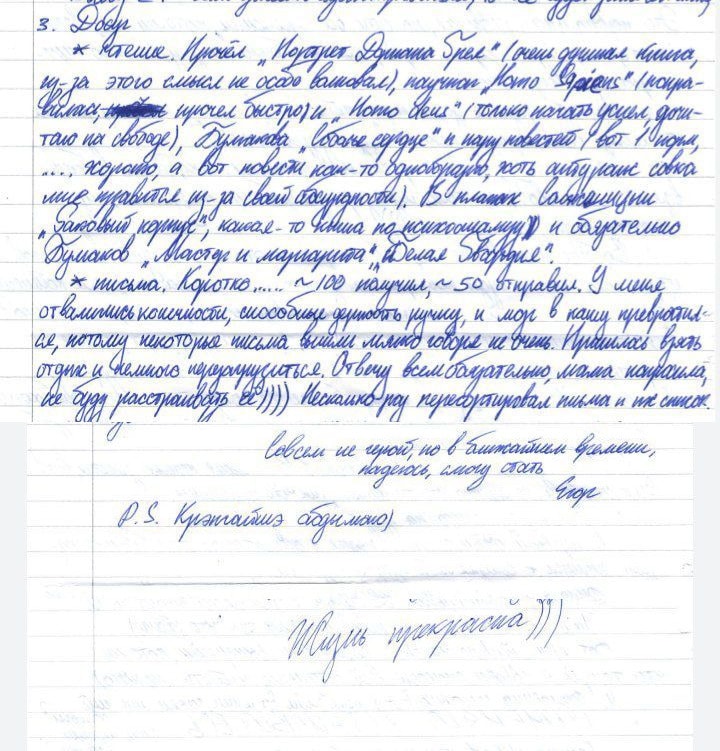 3. Досуг
* чтение. Прочёл „Портрет Дориана Грея" (очень душная книга,
из-за этого смысл не особо волновал), научпоп „Homo Sapiens" (понра-
вилась, прочел быстро) и „Homo deus" (только начать успел, дочи-
таю на свободе), Булгакова „Собачье сердце" и пару повестей (вот 1 норм,
.... хорошо, а вот повести как-то однообразно, хоть антураж совка
мне нравится из-за своей абсурдности). В планах Солженицын
„Раковый корпус", какая-то книга по психоанализу и обязательно
Булгаков „Мастер и маргарита", „Белая Гвардия".
* письма. Коротко..... ~100 получил, ~50 отправил. У меня
отвалились конечности, способные держать ручку, и мозг в кашу превратил-
ся, потому некоторые письма вышли мягко говоря не очень. Пришлось взять
отдых и немного перезагрузиться. Отвечу всем обязательно, мама попросила,
не буду расстраивать её)))) Несколько раз пересортировал письма и их список.
Совсем не герой, но в ближайшем времени,
надеюсь, смогу стать
Егор
P.S. Крэнгайшэ абдымаю)
Жизнь прекрасна)))